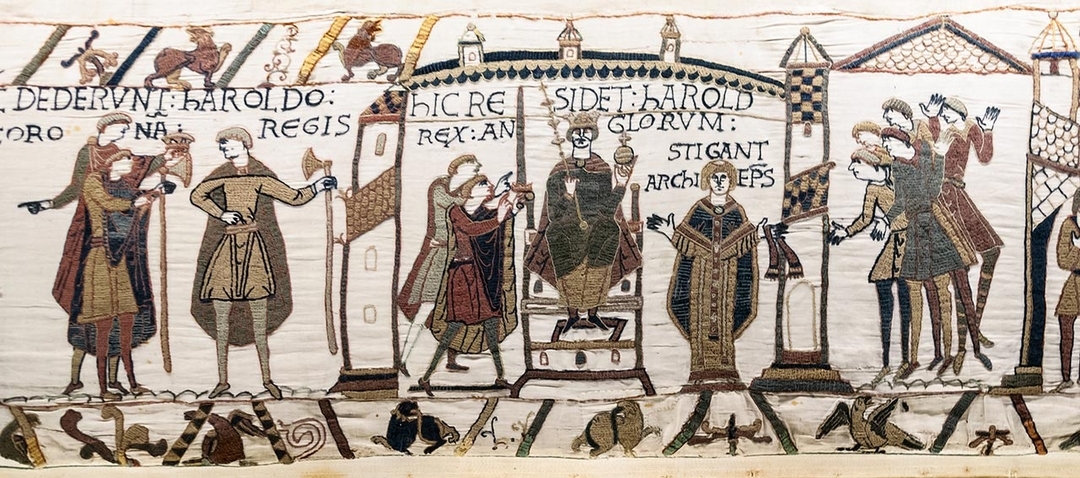 DEDERVNT: hAROLDO:
CORO NĀ: REGIS
hIC RE SIDET: hAROLD
REX: AN GLORVM:
STIGANT
ARChI EP̄S